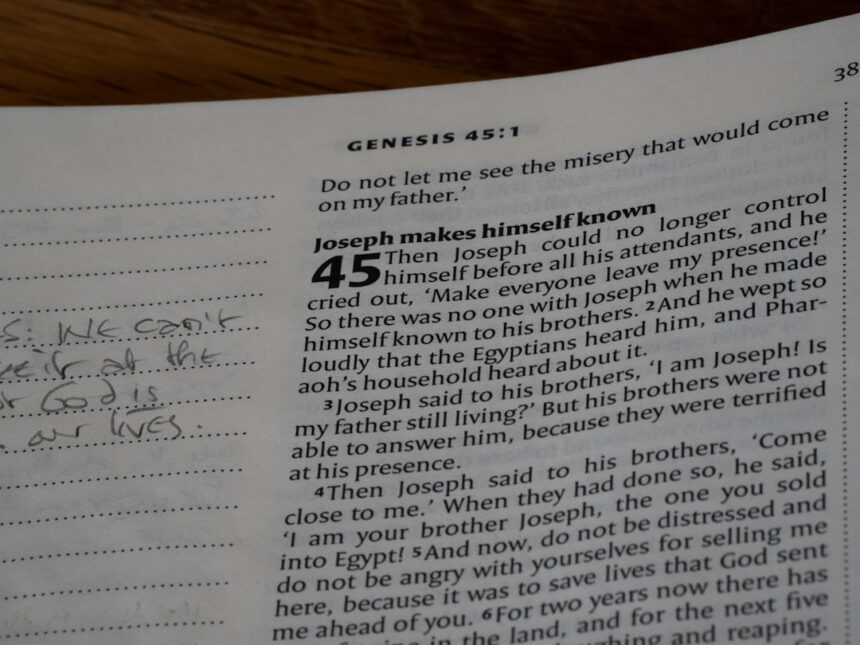 38
GENESIS 45:1
Do not let me see the misery that would come
on my father.’
Joseph makes himself known
45 Then Joseph could no longer control
himself before all his attendants, and he
cried out, ‘Make everyone leave my presence!’
So there was no one with Joseph when he made
himself known to his brothers. 2And he wept so
loudly that the Egyptians heard him, and Phar-
aoh’s household heard about it.
3Joseph said to his brothers, ‘I am Joseph! Is
my father still living?’ But his brothers were not
able to answer him, because they were terrified
at his presence.
4Then Joseph said to his brothers, ‘Come
close to me.’ When they had done so, he said,
‘I am your brother Joseph, the one you sold
into Egypt! 5And now, do not be distressed and
do not be angry with yourselves for selling me
here, because it was to save lives that God sent
me ahead of you. 6For two years now there has
in the land, and for the next five
and reaping.
for
we can't
at the
God is
our lives.